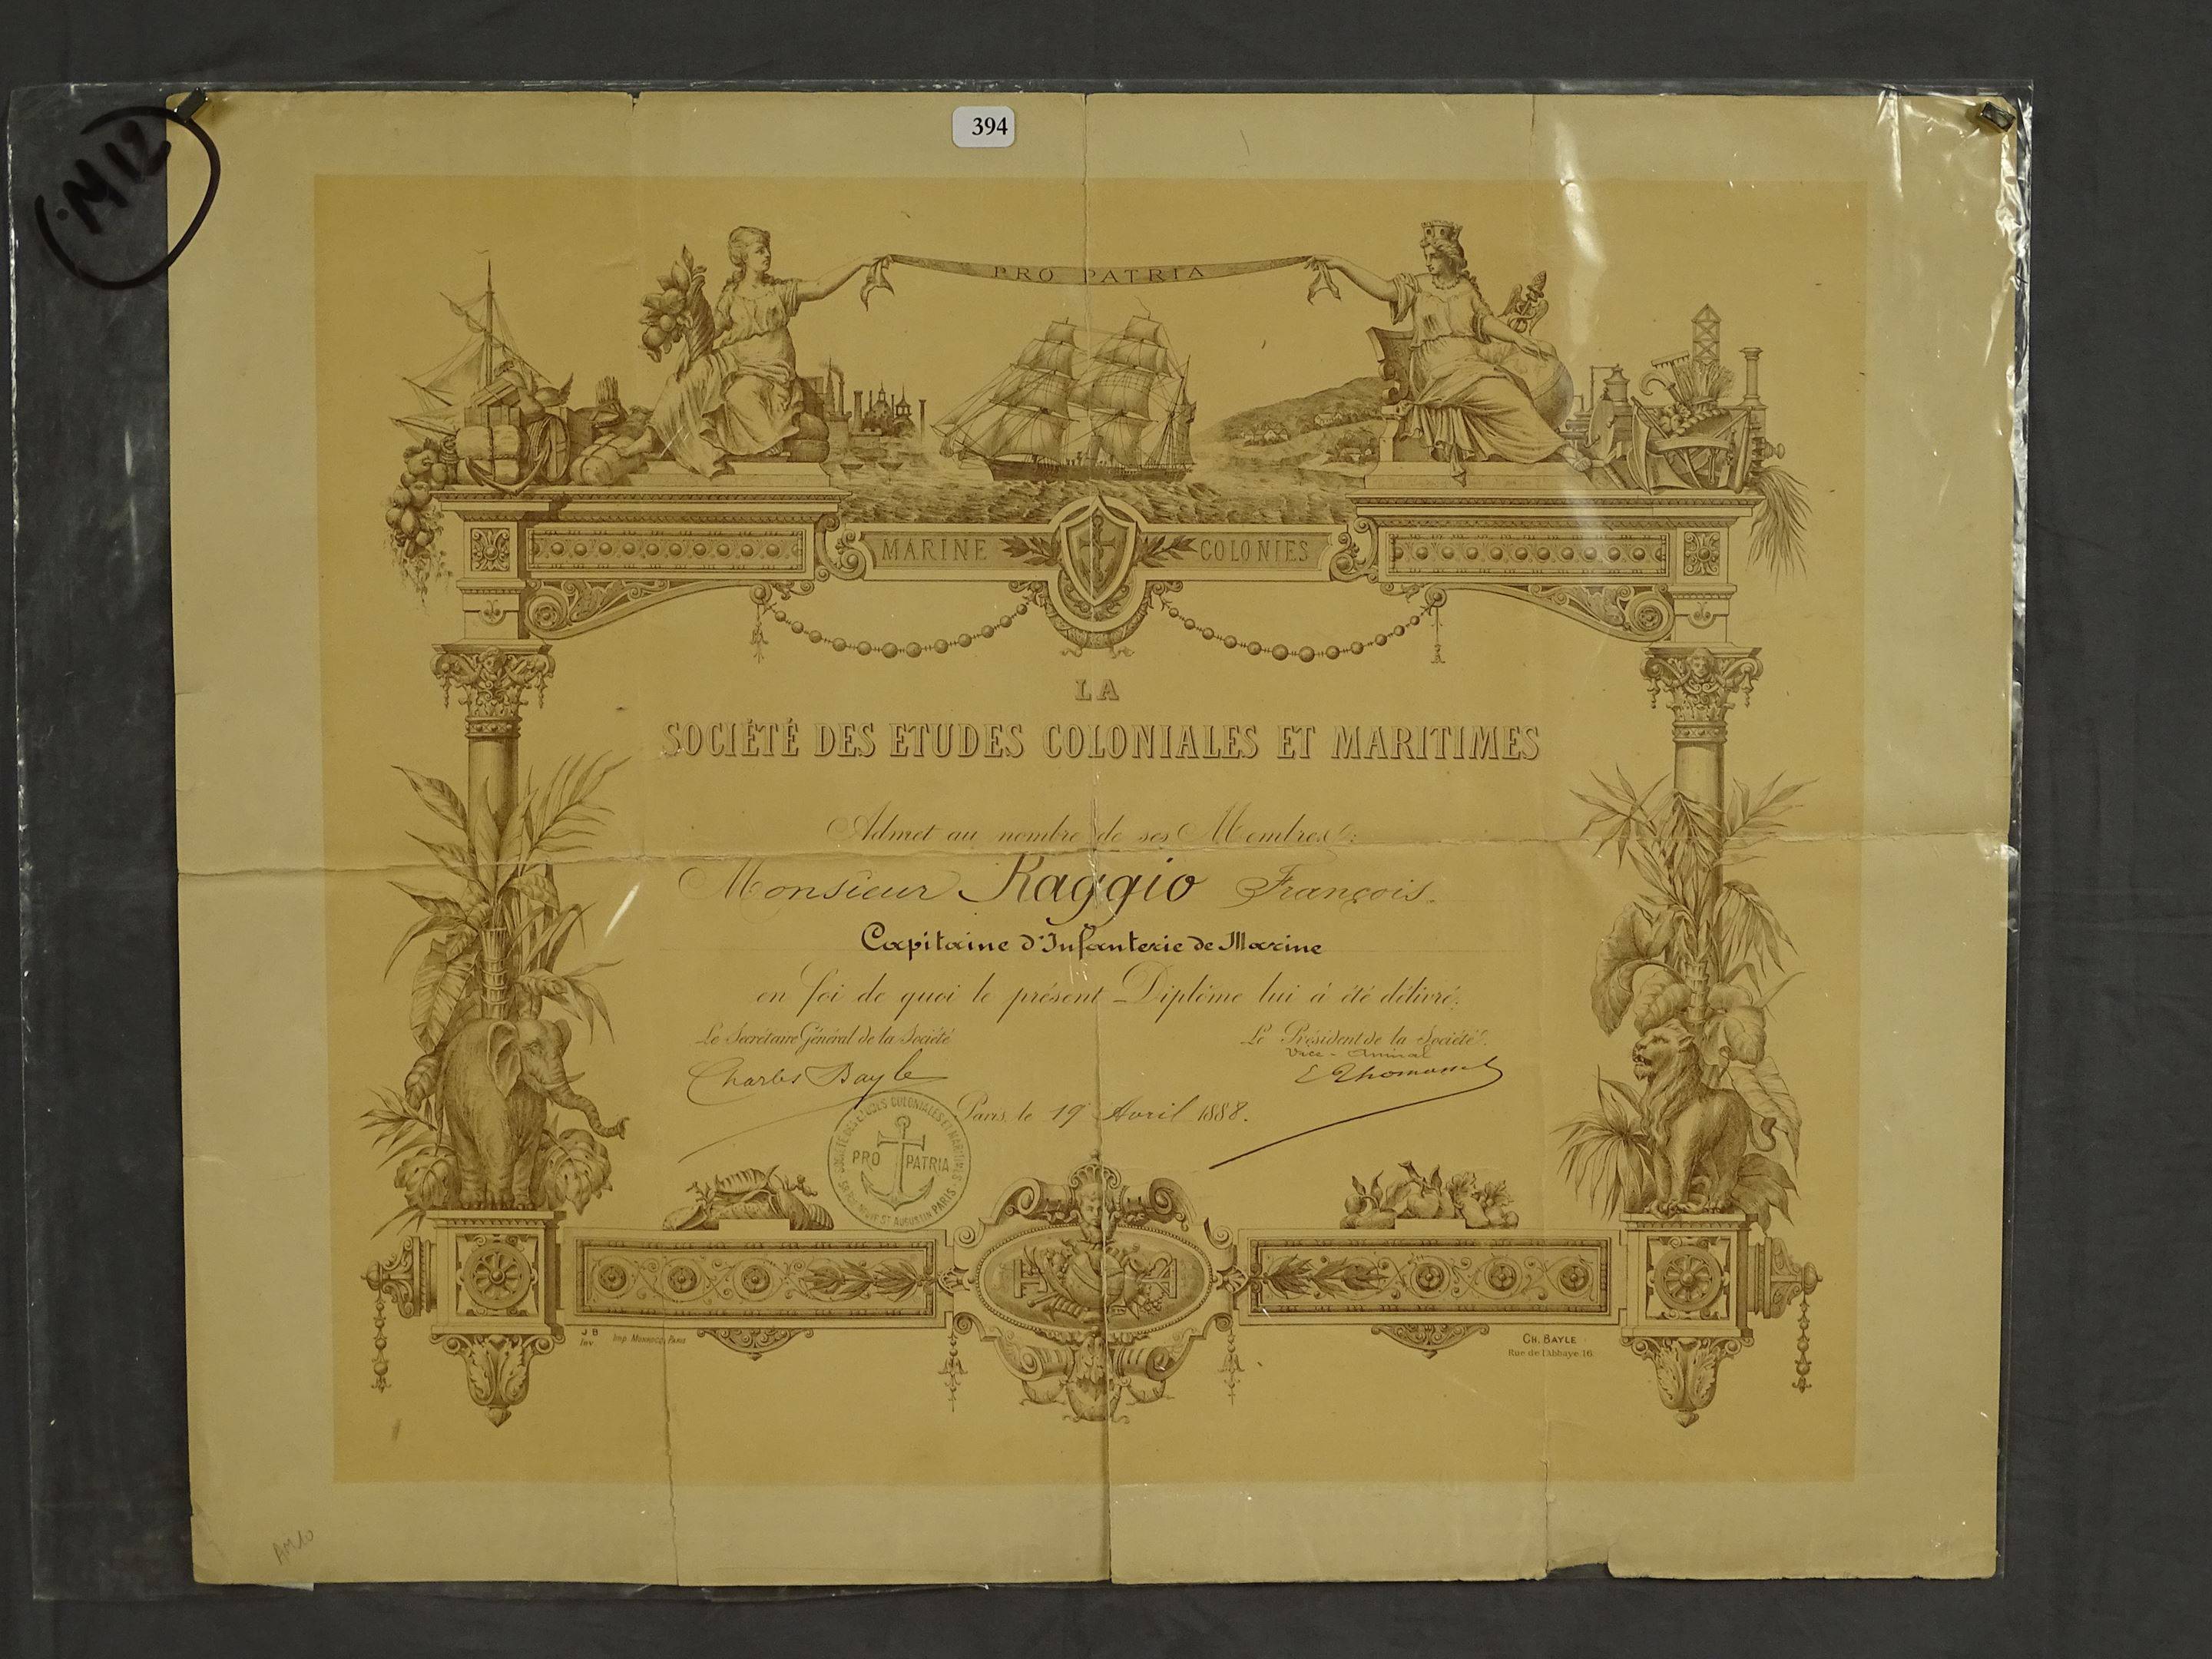 394
M12
PRO PATRIA
MARINE COLONIES
LA
SOCIÉTÉ DES ETUDES COLONIALES ET MARITIMES
Admet au nombre de ses Membres:
Monsieur Raggio François.
Capitaine d'Infanterie de Marine
en foi de quoi le présent Diplôme lui a été délivré.
Le Secrétaire Général de la Société
Le Président de la Société
Vice-Amiral
Charles Bayle
E Thomasset
Paris, le 19 Avril 1888.
SOCIÉTÉ DES ETUDES COLONIALES ET MARITIMES
PRO PATRIA
ST AUGUSTIN PARIS
J B
Inv
Imp. Monrocq, Paris
CH. BAYLE
Rue de l'Abbaye 16